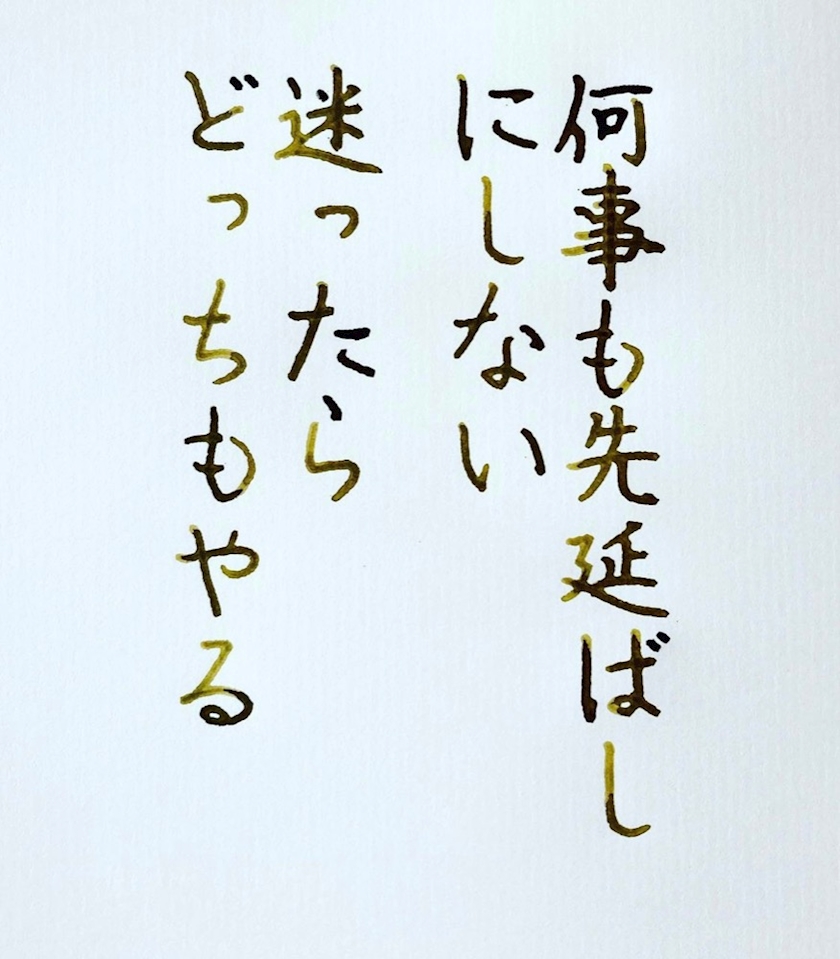 何事も先延ばし
にしない
迷ったら
どっちもやる